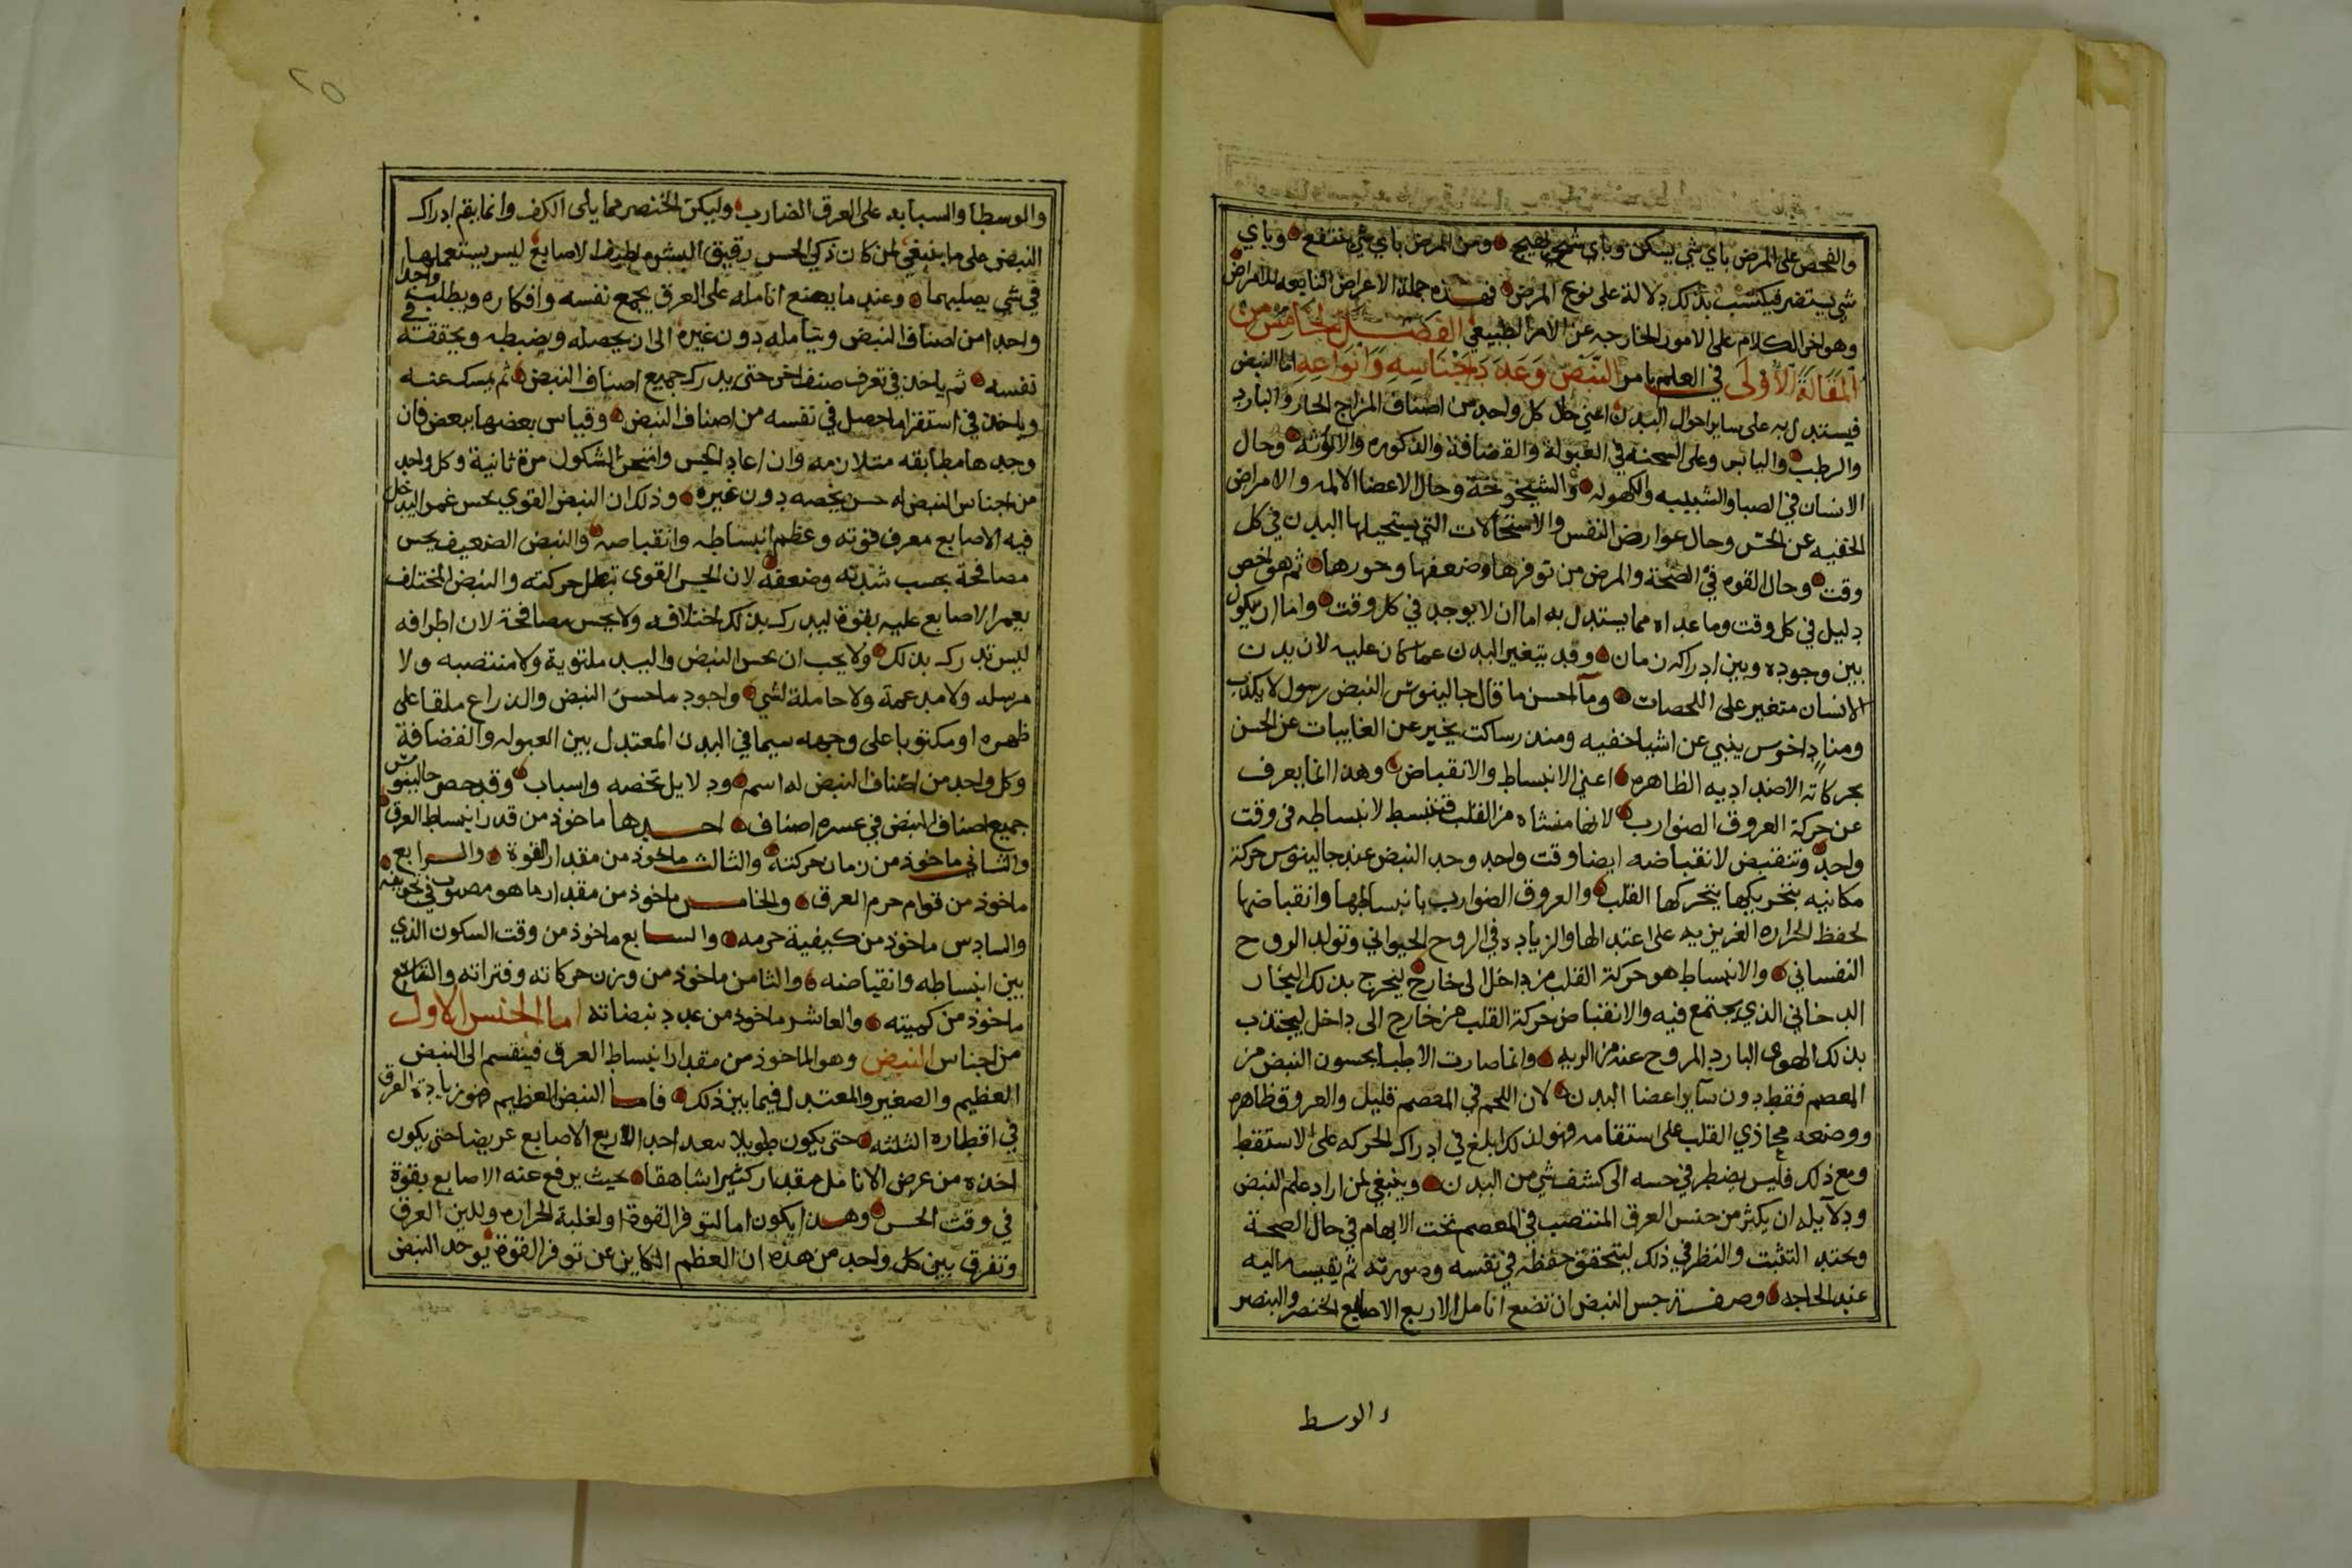 والفحص على المرض باي شي يسكن وباي شي يهيج ومن المرض باي شي ينتفع وباي
شي يستضر فيكتسب بذلك دلالة على نوع المرض فهذه جملة الاعراض التابعه للامراض
وهو اخر الكلام على الامور الخارجه عن الامر الطبيعي الفصل الخامس من
المقالة الاولى في العلم بامر النبض وعدد اجناسه وانواعه اما النبض
فيستدل به على ساير احوال البدن اعني حال كل واحد من اصناف المزاج الحار والبارد
والرطب واليابس وعلى السحنه في العبولة والقضافة والذكوره والانوثه وحال
الانسان في الصبا والشبيبه والكهوله والشيخوخة وحال الاعضا الالمه والامراض
الخفيه عن الحس وحال عوارض النفس والاستحالات التي يستحيلها البدن في كل
وقت وحال القوه في الصحة والمرض من توفرها وضعفها وخورها ثم هو اخص
دليل في كل وقت وما عداه مما يستدل به اما ان لا يوجد في كل وقت واما ان يكون
بين وجوده وبين ادراكه زمان وقد يتغير البدن عما كان عليه لان بدن
الانسان متغير على اللحصات وما احسن ما قال جالينوس النبض رسول لا يكذب
ومناد اخرس ينبي عن اشيا خفيه ومنذر ساكت يخبر عن الغايبات عن الحس
بحركاته الاضداديه الظاهره اعني الانبساط والانقباض وهذا انما يعرف
عن حركة العروق الضوارب لانها منشاه من القلب فتنبسط لانبساطه في وقت
واحد وتنقبض لانقباضه ايضا وقت واحد وحد النبض عند جالينوس حركة
مكانيه يتحركها القلب والعروق الضوارب بانبساطها وانقباضها
لحفظ الحراره الغريزيه على اعتدالها والزياده في الروح الحيواني وتولد الروح
النفساني والانبساط هو حركة القلب من داخل الى خارج ليخرج بذلك البخار
الدخاني الذي يجتمع فيه والانقباض حركة القلب من خارج الى داخل ليجتذب
بذلك الهوى البارد المروح عنه من الريه وانما صارت الاطبا يحسون النبض من
المعصم فقط دون ساير اعضا البدن لان اللحم في المعصم قليل والعروق ظاهره
ووضعه محاذي القلب على استقامه فهو لذلك ابلغ في ادراك الحركه على الاستقط
ومع ذلك فليس يضطر في حسه الى كشف شي من البدن وينبغي لمن اراد علم النبض
ودلايله ان يكثر من حبس العرق المنتصب في المعصم تحت الابهام في حال الصحة
ويجتهد التثبت والنظر في ذلك ليتحقق حفظه في نفسه وصورته ثم يقيسه اليه
عند الحاجه وصفة جس النبض ان تضع انامل الاربع الاصابع الخنصر والبنصر
والوسط
والوسطا والسبابه على العرق الضارب وليكن الخنصر مما يلى الكف وانما يقع ادراك
النبض على ما ينبغي لمن كان ذكي الحس رقيق البشره لطيف الاصابع ليس يستعملها
في شي يصلبهما وعند ما يضع انامله على العرق يجمع نفسه وافكاره ويطلب واحد
واحدا من اصناف النبض ويتامله دون غيره الى ان يحصله ويضبطه ويحققه في
نفسه ثم ياخذ في تعرف صنف اخر حتى يدرك جميع اصناف النبض ثم يمسك عنه
وياخذ في استقرا ما حصل في نفسه من اصناف النبض وقياس بعضها ببعض فان
وجدها مطابقه متلازمه وان اعاد الحس وامتحن الشكوك مرة ثانية وكل واحد
من اجناس النبض له حس يخصه دون غيره وذلك ان النبض القوي يحس غمر اليد خل
فيه الاصابع معرف قوته وعظم انبساطه وانقباضه والنبض الضعيف يحس
مصافحة بحسب شدته وضعفه لان الحس القوى تبطل حركته والنبض المختلف
يغمر الاصابع عليه بقوة ليدرك بذلك اختلافه ولا يحس مصافحة لان اطرافه
ليس تدرك بذلك ولا يجب ان يحس النبض واليد ملتوية ولا منتصبه ولا
مرسله ولا مدعمة ولا حاملة لشي واجود ما حسن النبض والذراع ملقا على
ظهره او مكتوبا على وجهه سيما في البدن المعتدل بين العبوله والقضافة
وكل واحد من اصناف النبض له اسم ودلايل تخصه واسباب وقد حصر جالينوس
جميع اصناف النبض في عسره اصناف احدها ماخوذ من قدر انبساط العرق
والثاني ماخوذ من زمان حركته والثالث ماخوذ من مقدار القوة والرابع
ماخوذ من قوام جرم العرق والخامس ماخوذ من مقدار ما هو مصبوب في تجويفه
والسادس ماخوذ من كيفية جرمه والسابع ماخوذ من وقت السكون الذي
بين انبساطه وانقباضه والثامن ماخوذ من وزن حركاته وفتراته والتاسع
ماخوذ من كميته والعاشر ماخوذ من عدد نبضاته اما الجنس الاول
من اجناس النبض وهو الماخوذ من مقدار انبساط العرق فينقسم الى النبض
العظيم والصغير والمعتدل فيما بين ذلك فاما النبض العظيم هو زيادة العرق
في اقطاره الثلثه حتى يكون طويلا بعد احد الاربع الاصابع عريضا حتى يكون
اخذه من عرض الانامل مقدار كثيرا شاهقا بحيث يرفع عنه الاصابع بقوة
في وقت الحس وهذا يكون اما لتوفر القوة او لغلبة الحراره وللين العرق
وتفرق بين كل واحد من هذه ان العظم الكاين عن توفر القوة يوجد النبض